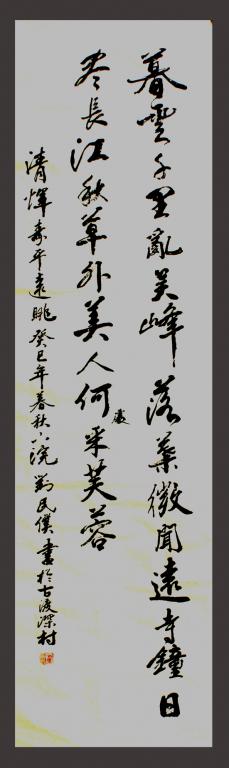 暮雲千里亂吴峰落葉微聞遠寺鐘日
尽長江秋草外美人何處采芙蓉
清惲壽平遠眺癸巳年春秋六浣劉民僕書於古渡深村